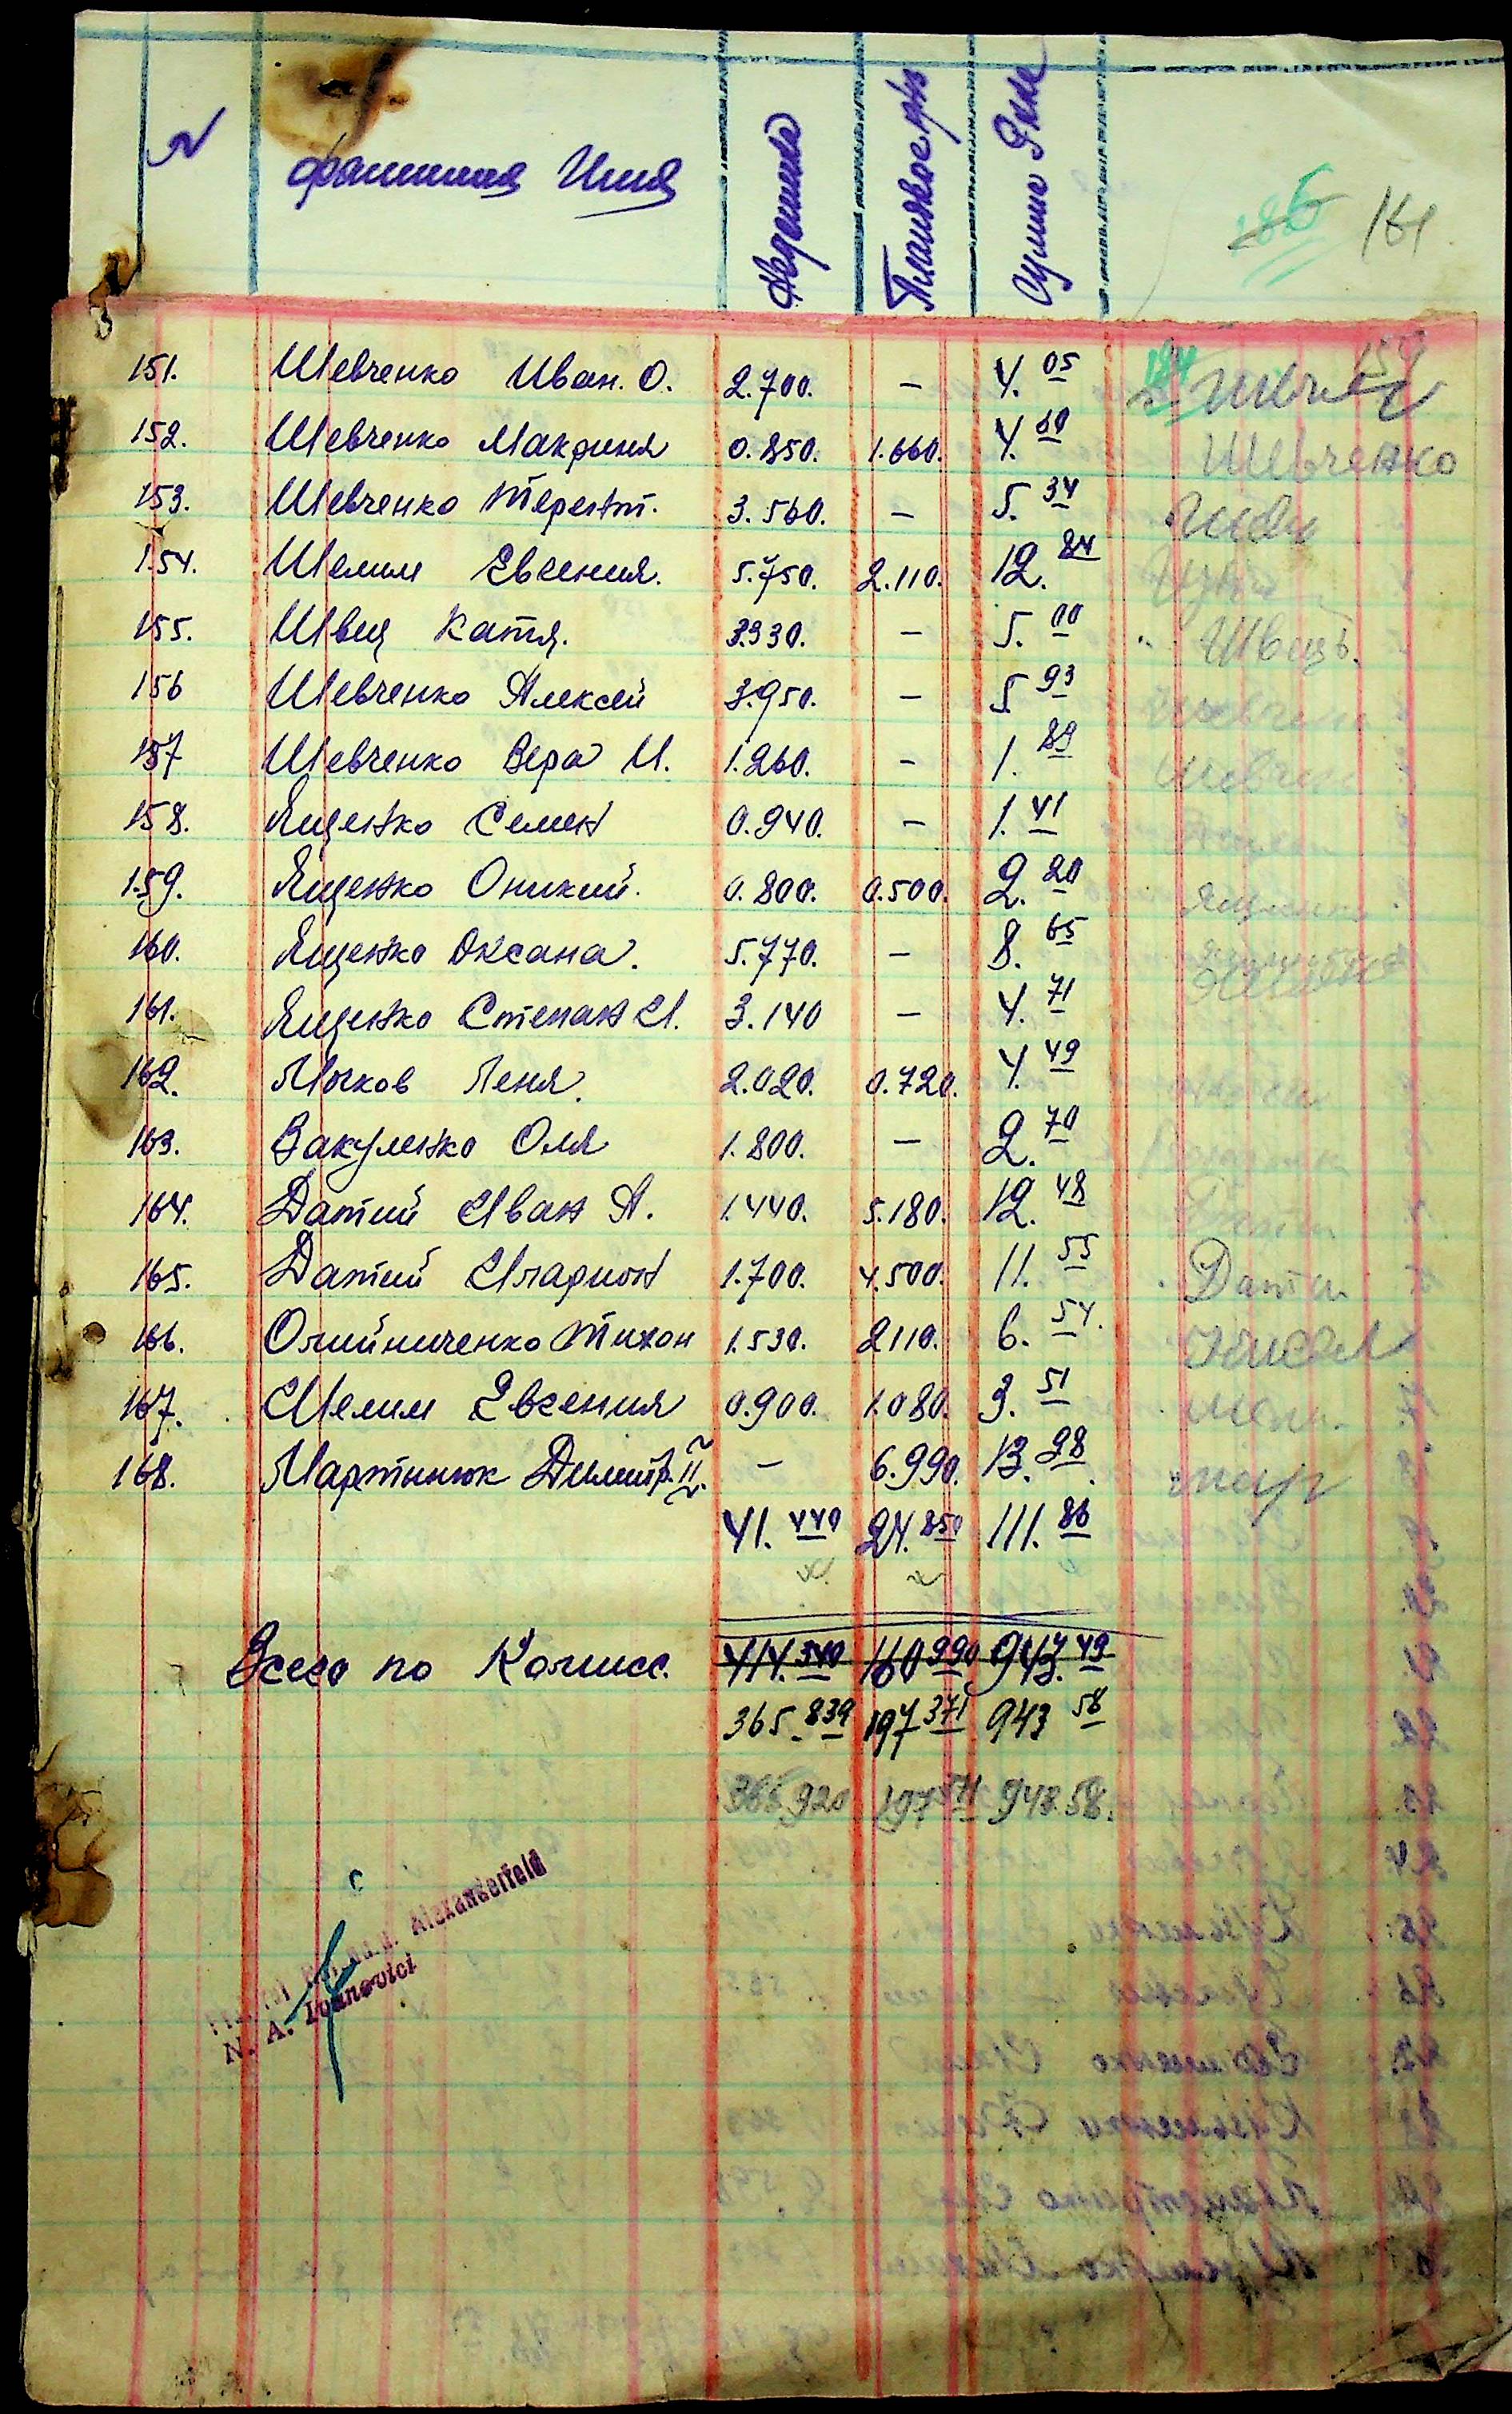 № Фамилия Имя Сумма
186 161
151. Шевченко Иван. О. 2.700. — 4.05
184 159
152. Шевченко Макриня 0.850. 1.660. 4.60 Шевченко
153. Шевченко Терент. 3.560. — 5.34
154. Шелим Евгения. 5.750. 2.110. 12.84
155. Швец Катя. 3.330. — 5.00 Швець.
156 Шевченко Алексей 3.950. — 5 93 Шевченко
157 Шевченко Вера И. 1.260. — 1.89 Шевченко
158. Ященко Семен 0.940. — 1.41
159. Ященко Оникий. 0.800. 0.500. 2.20 Ященко
160. Ященко Оксана. 5.770. — 8.65
161. Ященко Степан И. 3.140 — 4.71
162. Мочков Леня. 2.020. 0.720. 4.49
163. Вакуленко Оля 1.800. — 2.70
164. Датий Иван А. 1.440. 5.180. 12.48
165. Датий Иларион 1.700. 4.500. 11.55 Датий
166. Олийниченко Тихон 1.530. 2110. 6.54.
167. Шелим Евгения 0.900. 1.080. 3.51
168. Мартинюк Димитр. II. — 6.990. 13.98. мар
41.440 24.850 111.86
Всего по Комисс. 414.340 160990 943.49
365.839 197371 943 58
197571 943.58.
Alexanderfeld
N. A. Ivanovici